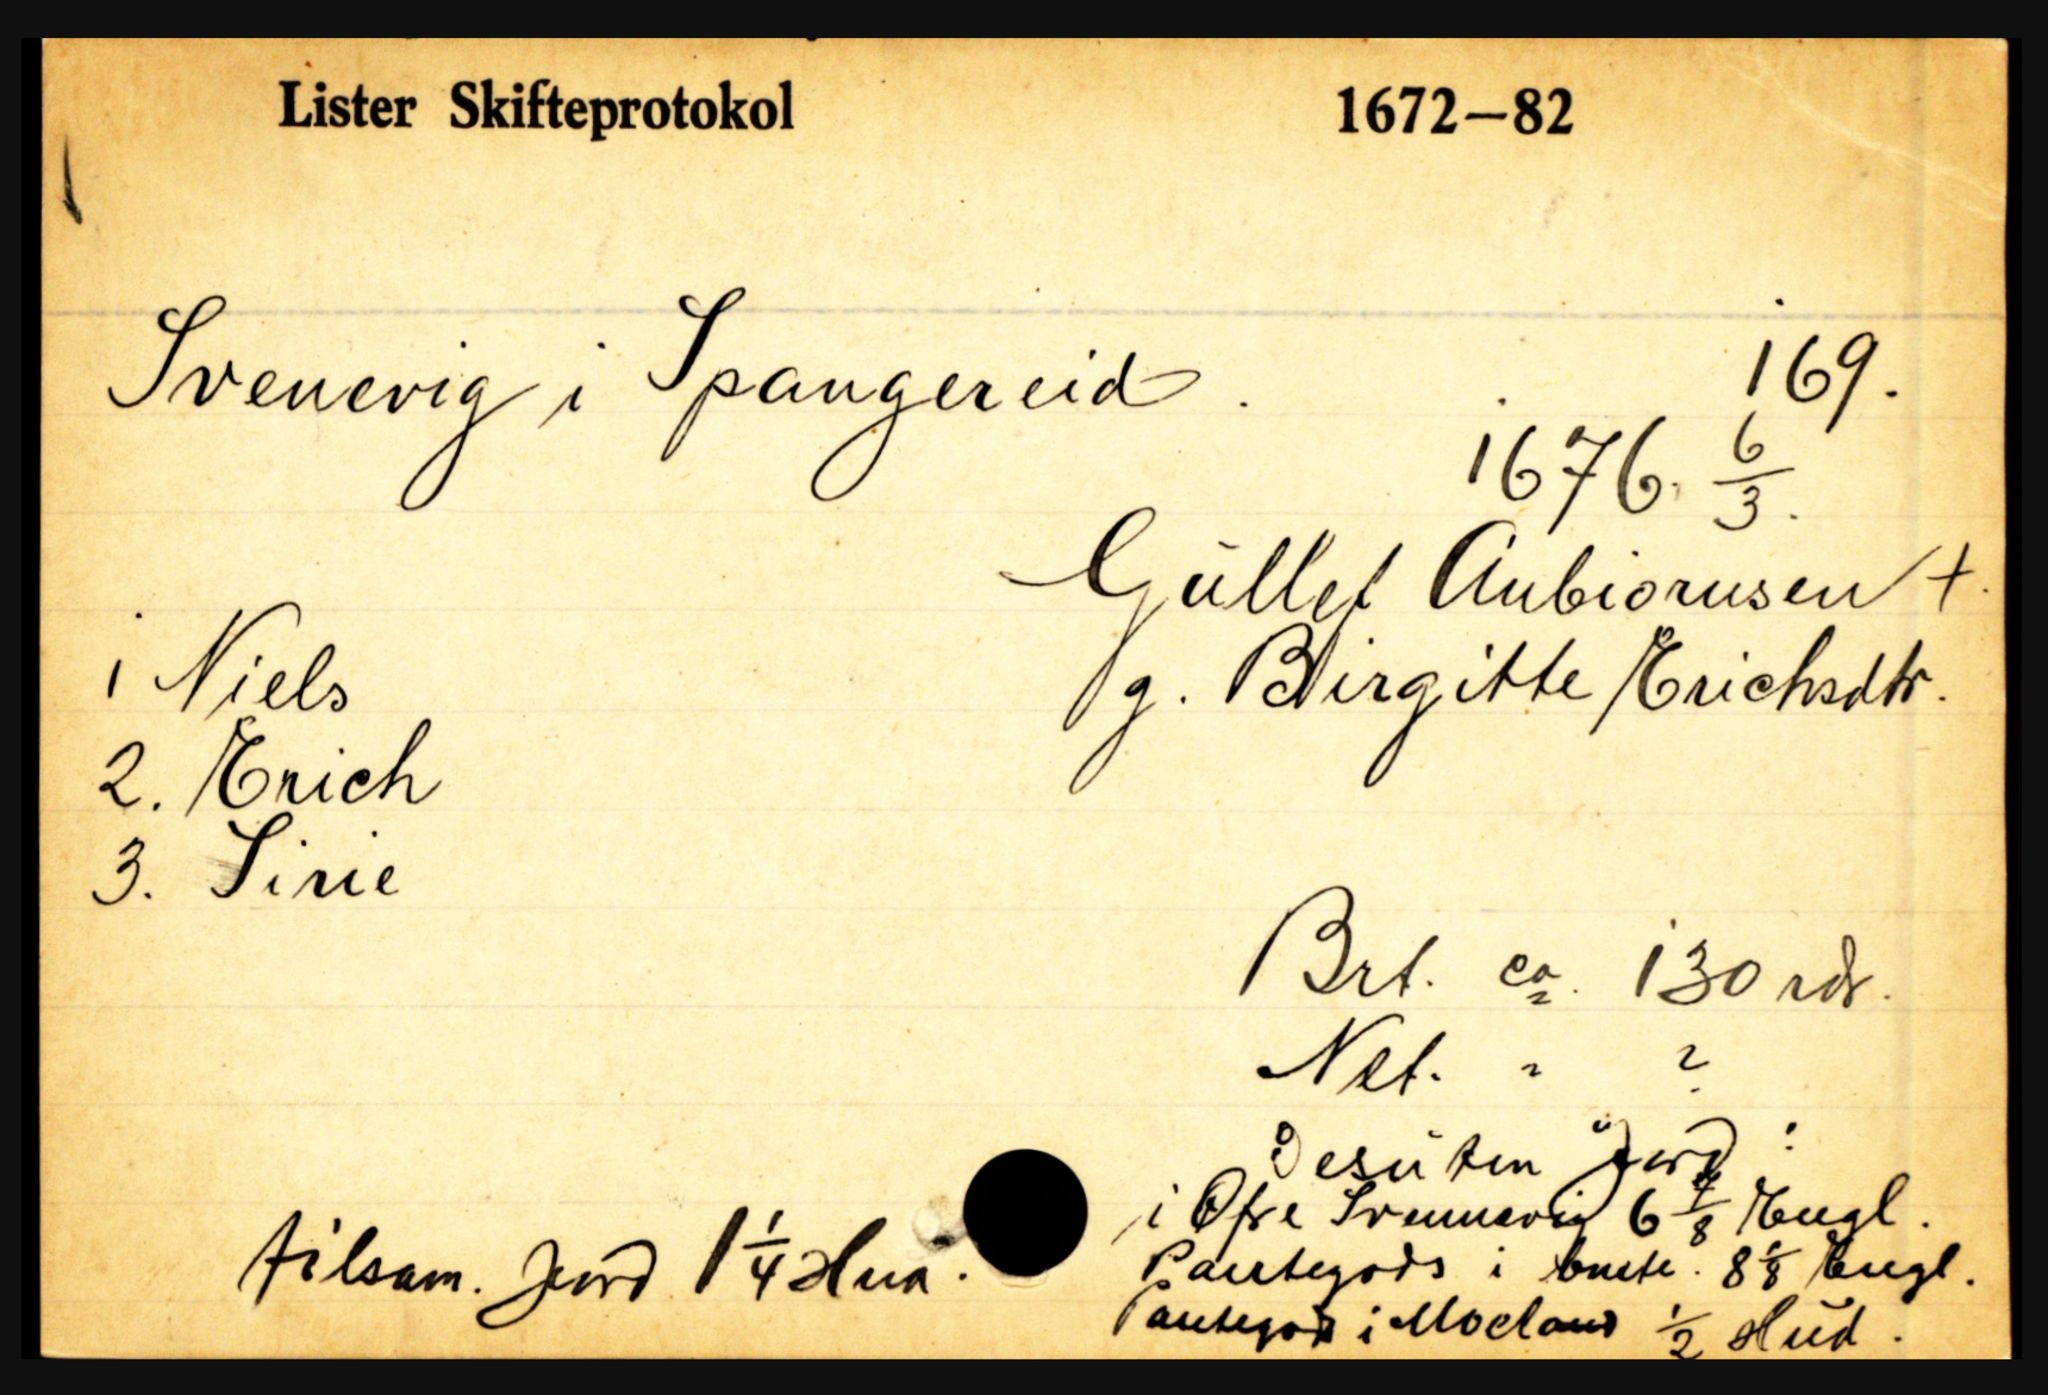 Lister Skifteprotokol 1672—82
Svenevig i Spangereid. 169.
1676. 6/3.
Güllef Anbiornsen +.
g. Birgitte Erichsdtr.
1 Niels
2. Erich
3. Sirie
Brt. ca. 130 rdr.
Net. " ?
Desüten Jord :
i Øfre Svennevig 6 7/8 Engl.
Pantegods i 8 1/8 Engl.
Pantegods i Moeland 1/2 Hüd.
tilsam. Jord 1 1/4 Hud.